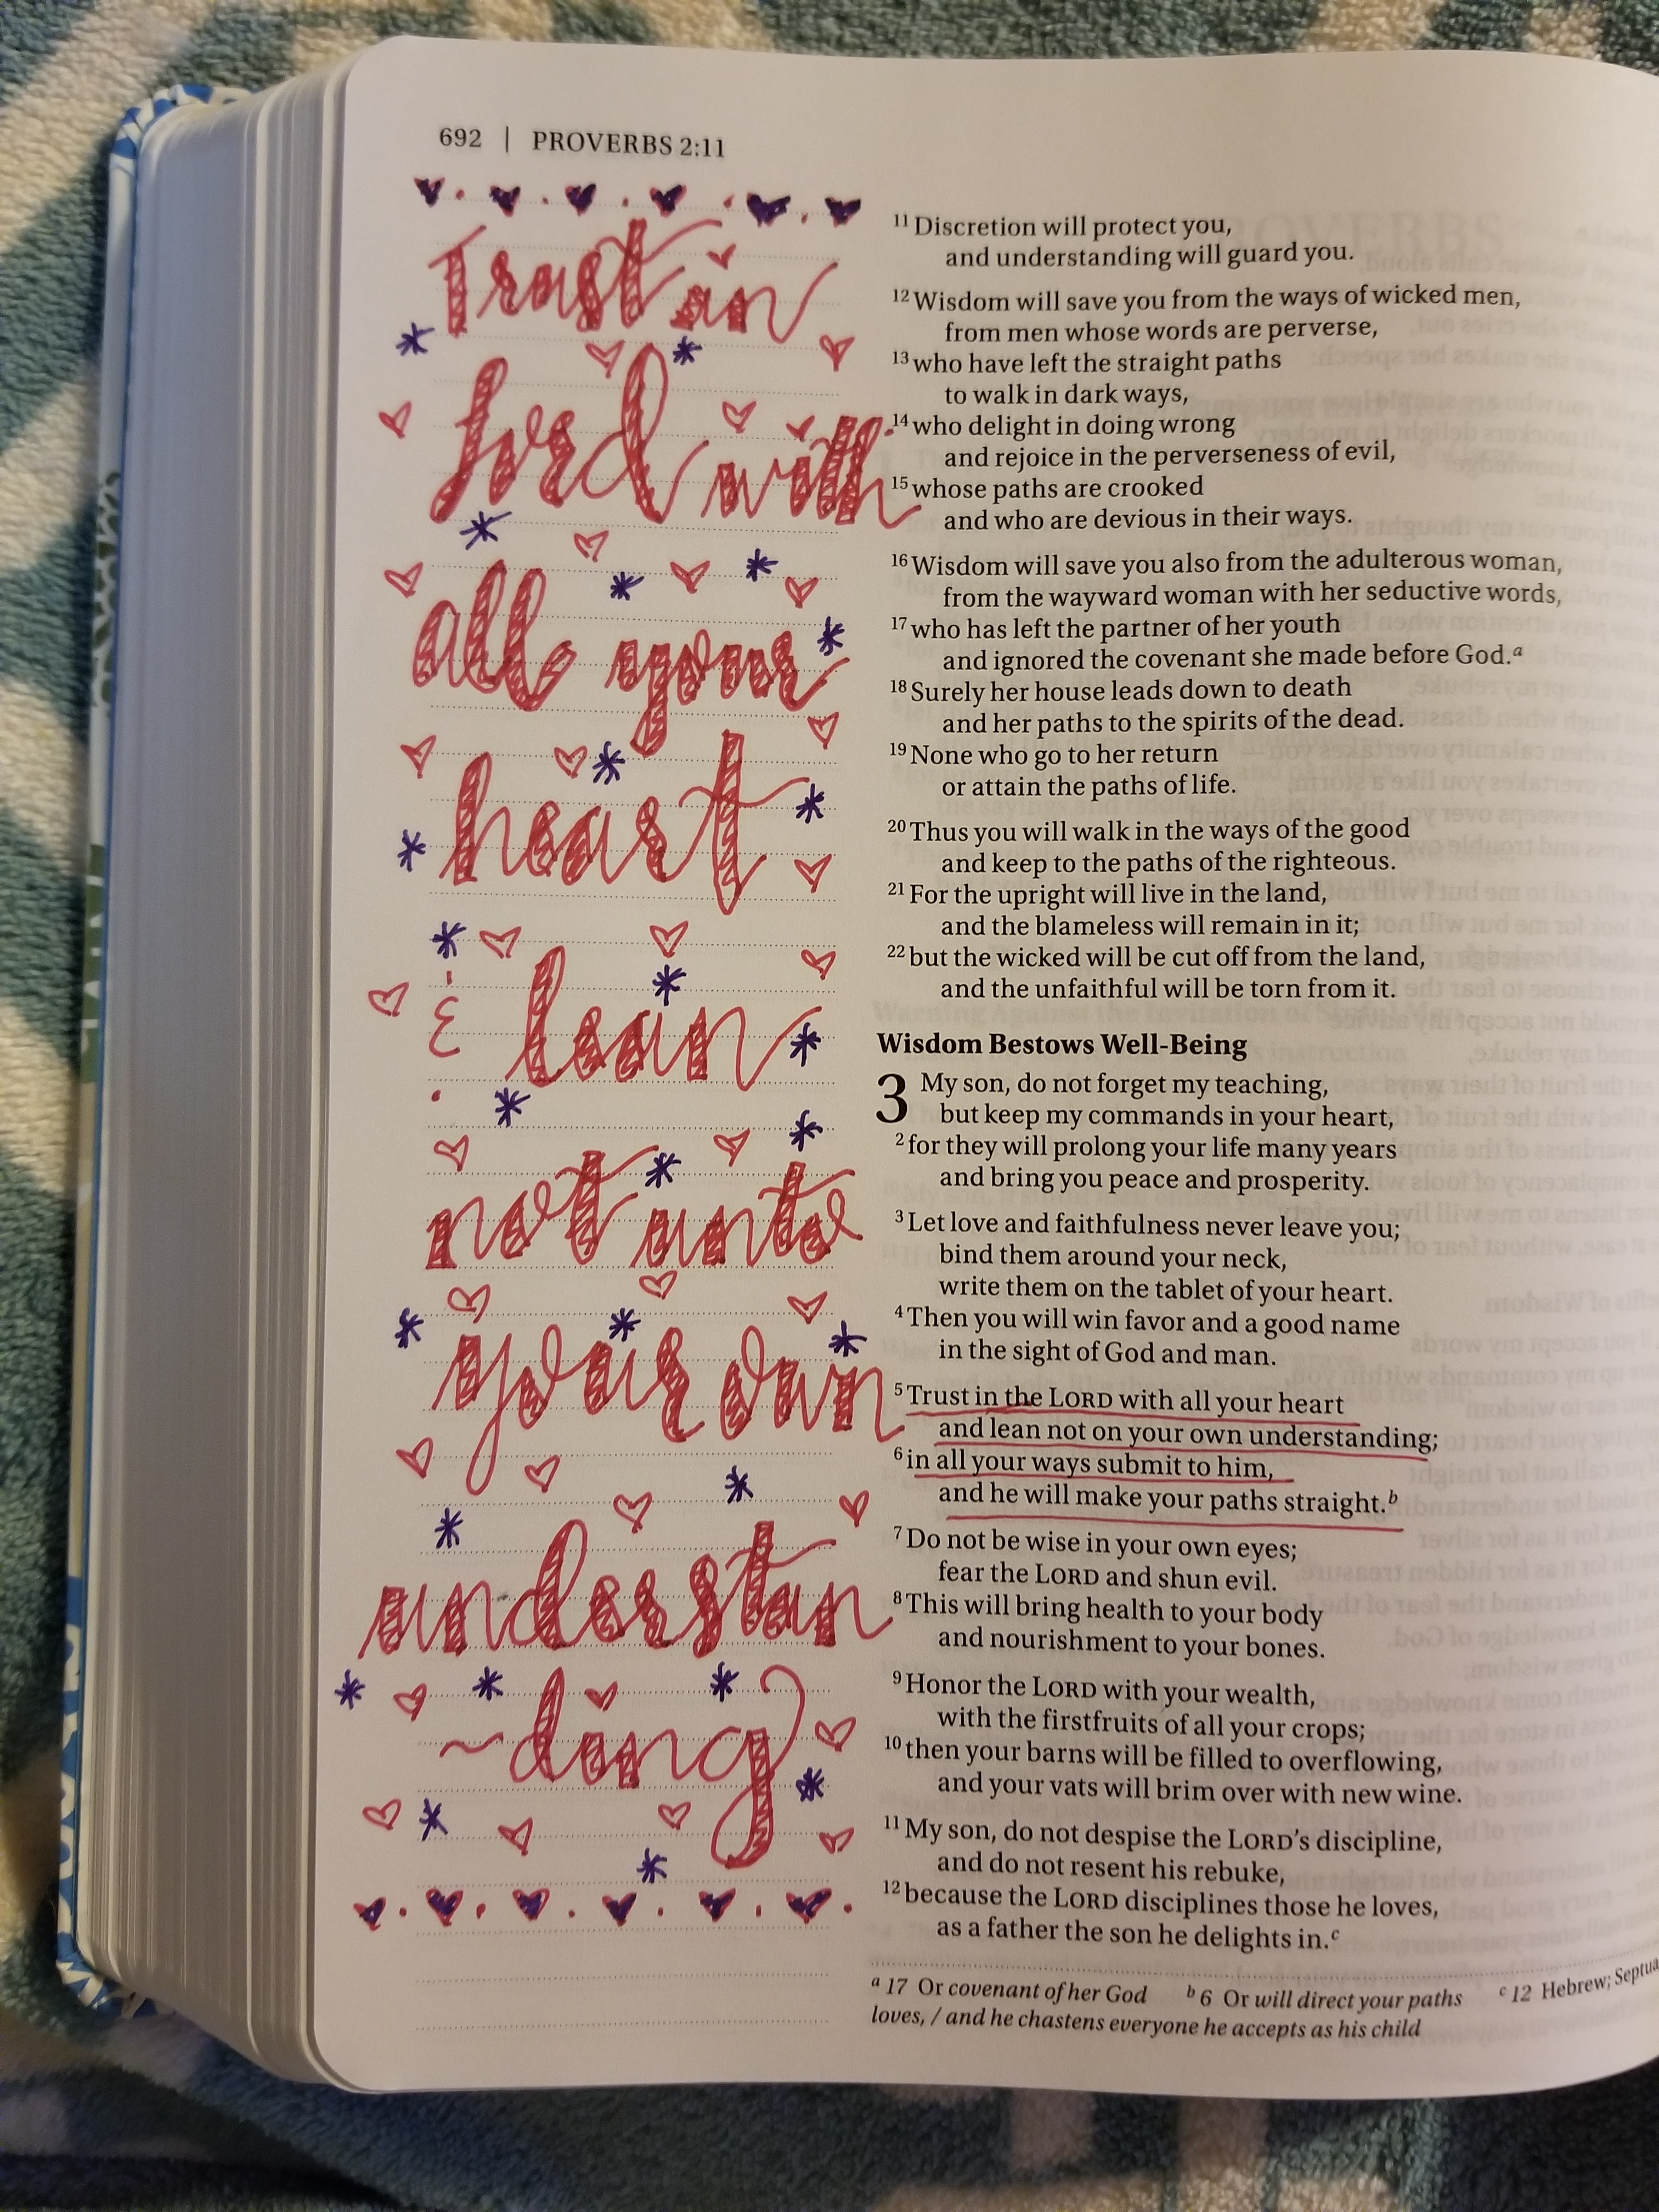 692 | PROVERBS 2:11
Trust in
Lord with
all your
heart
& lean
not unto
your own
understan
~ding
11 Discretion will protect you,
and understanding will guard you.
12 Wisdom will save you from the ways of wicked men,
from men whose words are perverse,
13 who have left the straight paths
to walk in dark ways,
14 who delight in doing wrong
and rejoice in the perverseness of evil,
15 whose paths are crooked
and who are devious in their ways.
16 Wisdom will save you also from the adulterous woman,
from the wayward woman with her seductive words,
17 who has left the partner of her youth
and ignored the covenant she made before God.a
18 Surely her house leads down to death
and her paths to the spirits of the dead.
19 None who go to her return
or attain the paths of life.
20 Thus you will walk in the ways of the good
and keep to the paths of the righteous.
21 For the upright will live in the land,
and the blameless will remain in it;
22 but the wicked will be cut off from the land,
and the unfaithful will be torn from it.
Wisdom Bestows Well-Being
3 My son, do not forget my teaching,
but keep my commands in your heart,
2 for they will prolong your life many years
and bring you peace and prosperity.
3 Let love and faithfulness never leave you;
bind them around your neck,
write them on the tablet of your heart.
4 Then you will win favor and a good name
in the sight of God and man.
5 Trust in the LORD with all your heart
and lean not on your own understanding;
6 in all your ways submit to him,
and he will make your paths straight.b
7 Do not be wise in your own eyes;
fear the LORD and shun evil.
8 This will bring health to your body
and nourishment to your bones.
9 Honor the LORD with your wealth,
with the firstfruits of all your crops;
10 then your barns will be filled to overflowing,
and your vats will brim over with new wine.
11 My son, do not despise the LORD's discipline,
and do not resent his rebuke,
12 because the LORD disciplines those he loves,
as a father the son he delights in.c
a 17 Or covenant of her God b 6 Or will direct your paths c 12 Hebrew; Septua
loves, / and he chastens everyone he accepts as his child